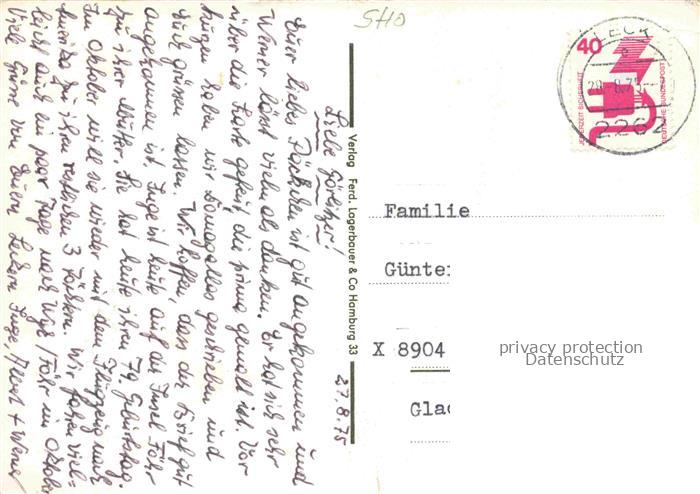 SHO
Liebe Görlitzer!
Euer liebes Päckchen ist gut angekommen und
Werner lässt vielmals danken. Er hat sich sehr
über die Karte gefreut, die prima gemalt ist. Vor
kurzem haben wir Damagallas geschrieben und
Euch grüssen lassen. Wir hoffen, dass der Brief gut
angekommen ist. Inge ist heute auf der Insel Föhr
zu ihrer Mutter. Sie hat heute ihren 79. Geburtstag.
Im Oktober will sie wieder mit dem Flugzeug nach
Amerika zu ihren restlichen 3 Töchtern. Wir fahren viel=
leicht auch ein paar Tage nach Wyk/Föhr im Oktober
Viele Grüsse von Euern Leckern Inge, Albert + Werner
27.8.75
Verlag Ferd. Lagerbauer & Co Hamburg 33
LECK
28.-8.75
2262
40
JEDERZEIT SICHERHEIT
DEUTSCHE BUNDESPOST
Familie
Günter
X 8904
Gla
privacy protection
Datenschutz